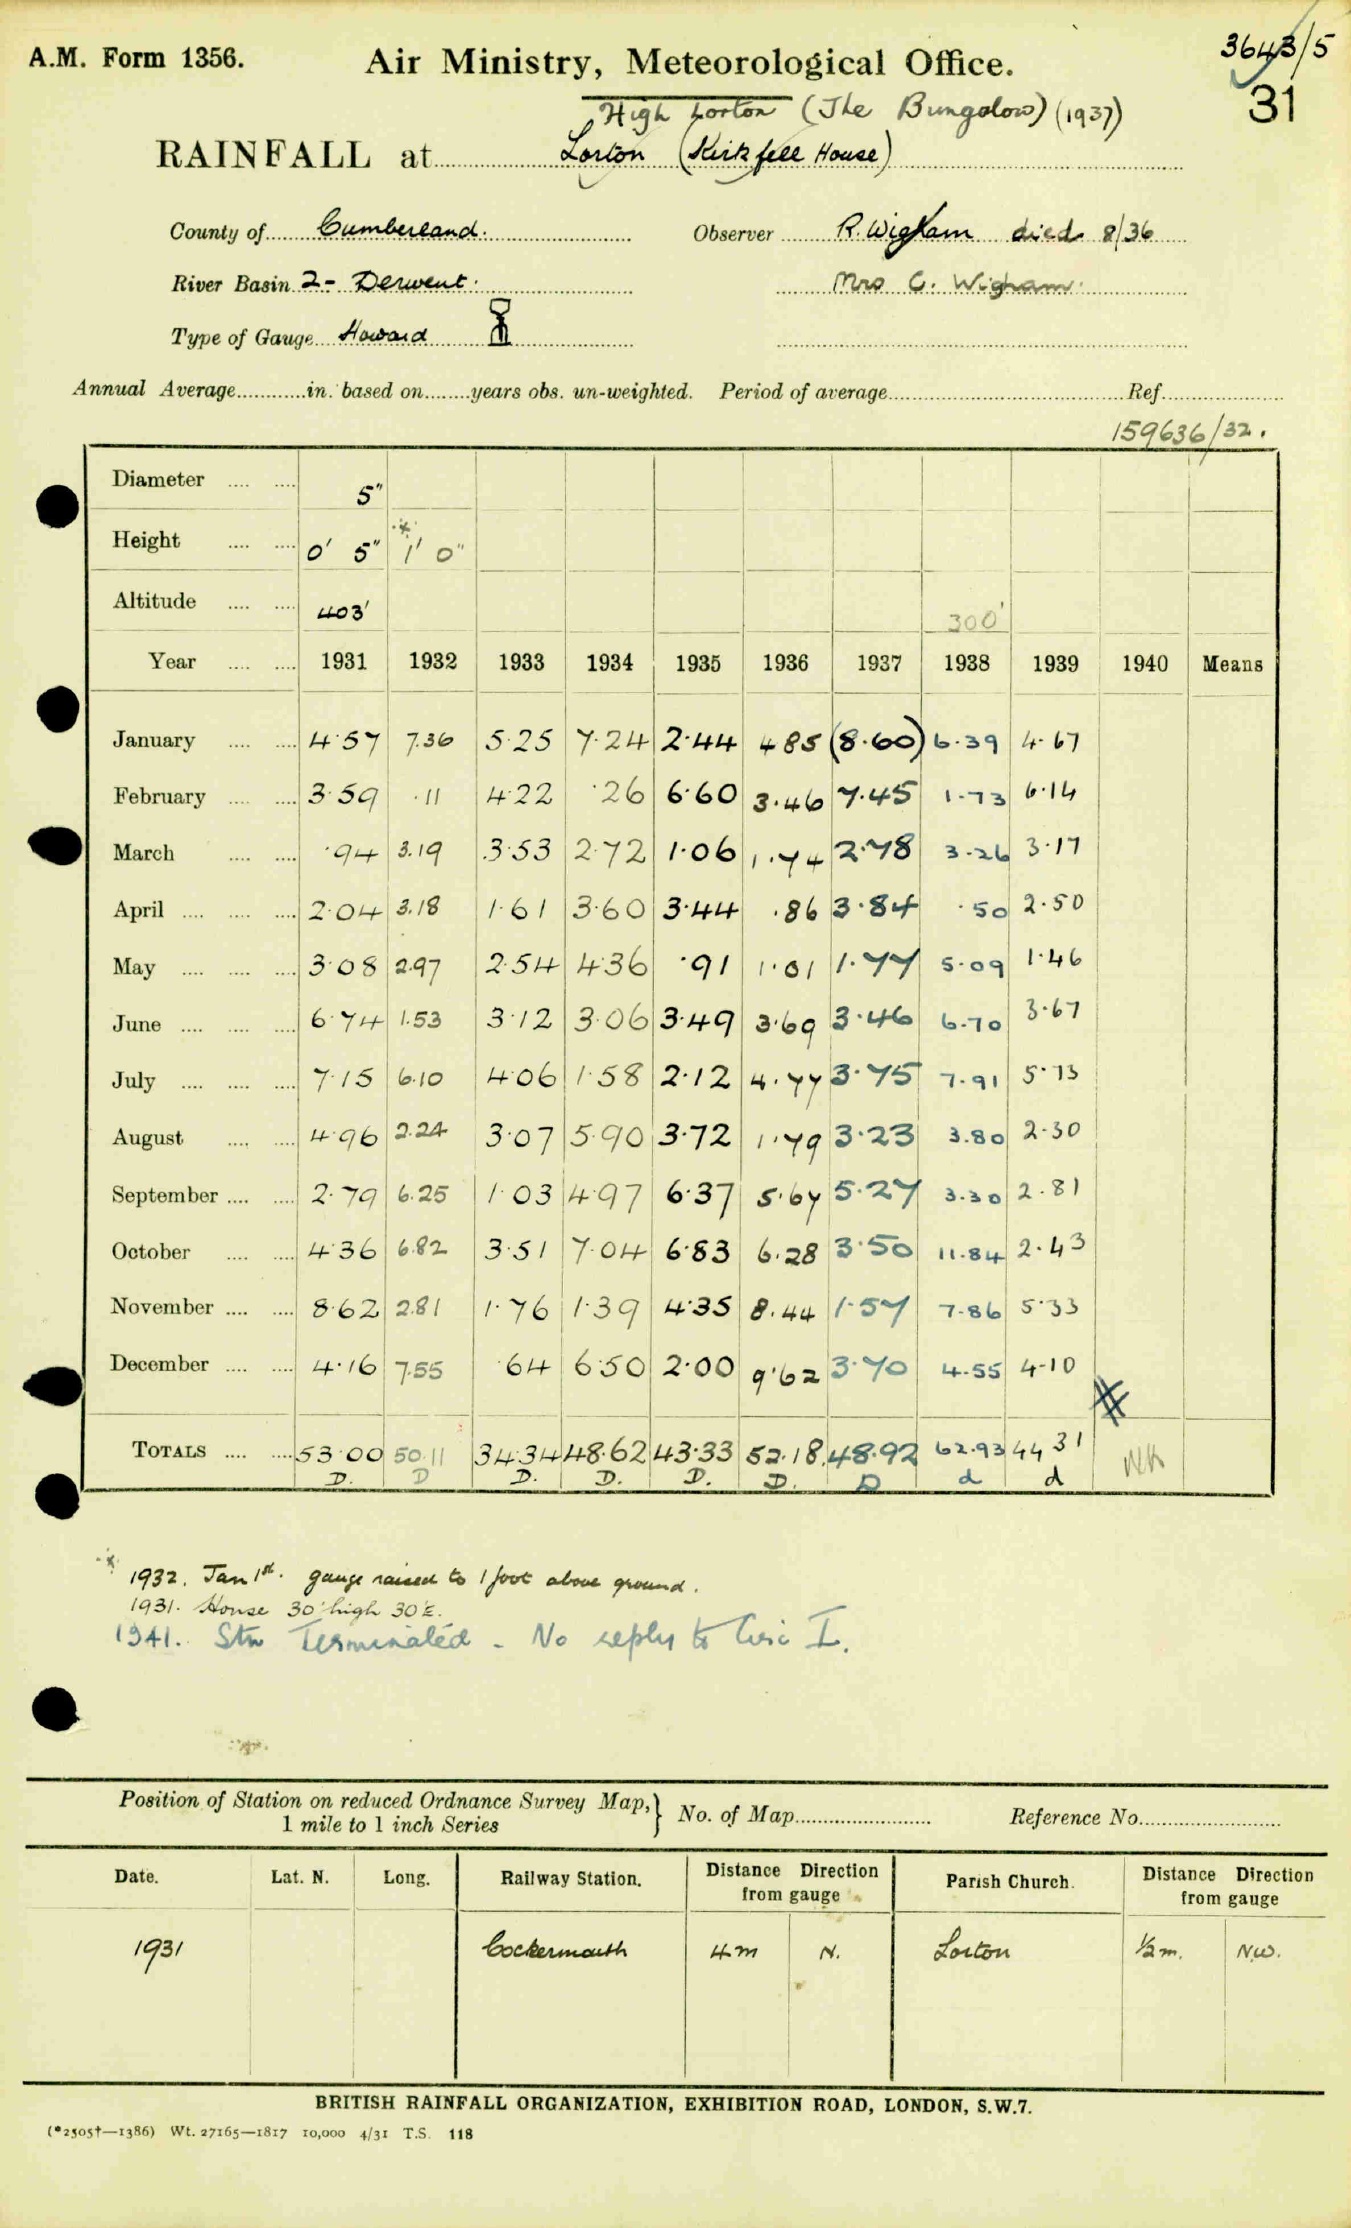 A.M. Form 1356.
Air Ministry, Meteorological Office.
3643/5
31
High Lorton (The Bungalow) (1937)
RAINFALL at Lorton (Kirkfell House)
County of Cumberland. Observer R. Wigham died 8/36
River Basin 2- Derwent. Mrs C. Wigham.
Type of Gauge Howard
Annual Average............in. based on........years obs. un-weighted. Period of average.................... Ref....................
159636/32.
Diameter .... .... 5"
Height .... .... 0' 5" * 1' 0"
Altitude .... .... 403' 300'
Year .... .... 1931 1932 1933 1934 1935 1936 1937 1938 1939 1940 Means
January .... .... 4·57 7.36 5·25 7·24 2·44 4.85 (8·60) 6·39 4·67
February .... .... 3·59 ·11 4·22 ·26 6·60 3·46 7·45 1·73 6·14
March .... .... ·94 3.19 3·53 2·72 1·06 1·74 2·78 3·26 3·17
April .... .... .... 2·04 3.18 1·61 3·60 3·44 ·86 3·84 ·50 2·50
May .... .... .... 3·08 2.97 2·54 4·36 ·91 1·01 1·77 5·09 1·46
June .... .... .... 6·74 1.53 3·12 3·06 3·49 3·69 3·46 6·70 3·67
July .... .... .... 7·15 6.10 4·06 1·58 2·12 4·77 3·75 7·91 5·73
August .... .... 4·96 2.24 3·07 5·90 3·72 1·79 3·23 3.80 2·30
September .... .... 2·79 6.25 1·03 4·97 6·37 5·67 5·27 3.30 2.81
October .... .... 4·36 6.82 3·51 7·04 6·83 6·28 3·50 11.84 2·43
November .... .... 8·62 2.81 1·76 1·39 4·35 8.44 1·57 7·86 5·33
December .... .... 4·16 7.55 ·64 6·50 2·00 9·62 3·70 4·55 4·10
TOTALS .... .... 53·00 50.11 34·34 48·62 43·33 52·18 48·92 62·93 44 31 NR
D. D D. D. D. D. D d d
* 1932. Jan 1st. gauge raised to 1 foot above ground.
1931. House 30' high 30'E.
1941. Stn Terminated - No reply to Circ I.
Position of Station on reduced Ordnance Survey Map,} No. of Map.................... Reference No....................
1 mile to 1 inch Series
Date. Lat. N. Long. Railway Station. Distance Direction from gauge Parish Church. Distance Direction from gauge
1931 Cockermouth 4m N. Lorton ½m. NW.
BRITISH RAINFALL ORGANIZATION, EXHIBITION ROAD, LONDON, S.W.7.
(*2505†—1386) Wt. 27165—1817 10,000 4/31 T.S. 118